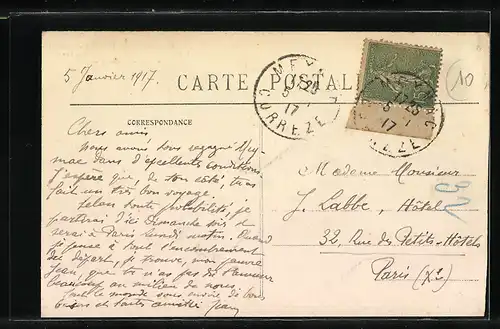 5 Janvier 1917.
CARTE POSTALE
10
MEYMAC
CORREZE
17
CORRESPONDANCE
Chers amis
Nous avons tous regagné Mey-
mac dans d'excellents conditions.
J'espère que, de ton côté, tu as
fait un très bon voyage.
Selon toute probabilité, je
partirai d'ici Dimanche soir et
serai à Paris lundi matin. Quand
je pense à tout l'encombrement
du départ, je trouve, mon pauvre
Jean, que tu n'as pas dû t'amuser
beaucoup au milieu de nous.
Tout le monde vous envoie de bons
baisers et toute amitié
Madame Monsieur
J. Labbe, Hôtel
32, Rue des Petits-Hôtels
Paris (Xe)